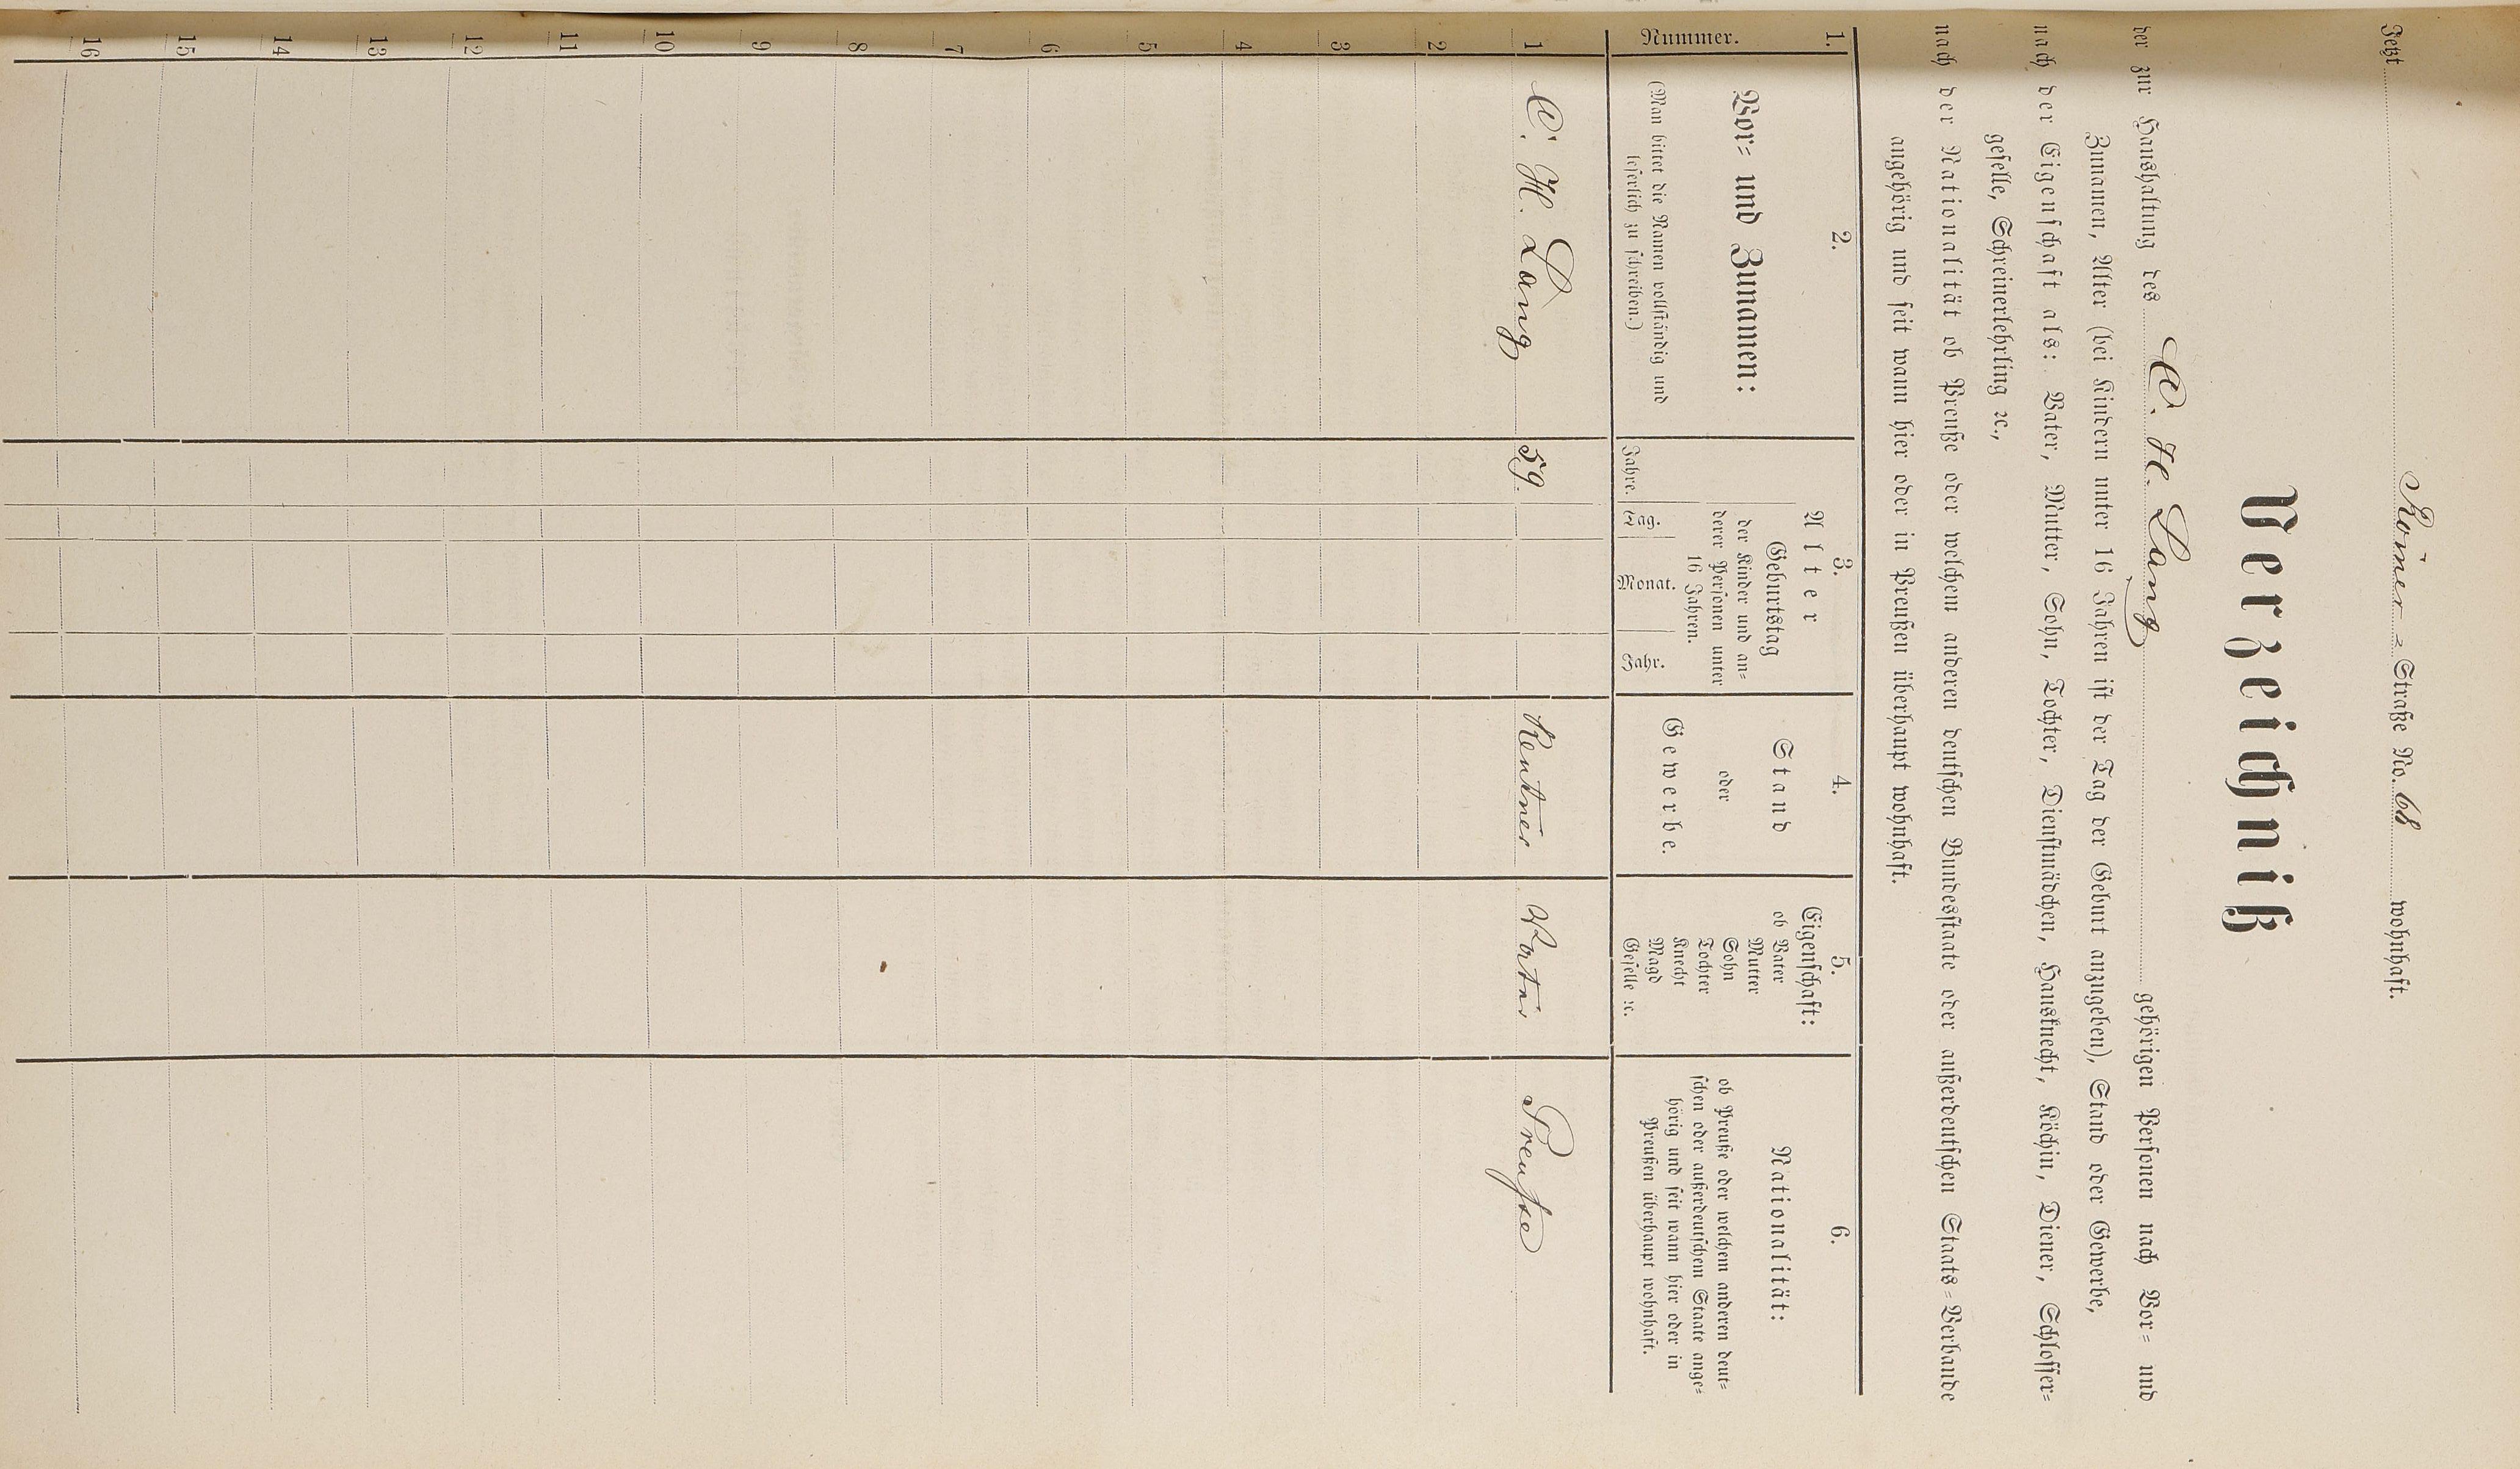 Jetzt Römer = Straße No. 68 wohnhaft.
Verzeichniß
der zur Haushaltung des C. H. Lang gehörigen Personen nach Vor= und
Zunamen, Alter (bei Kindern unter 16 Jahren ist der Tag der Geburt anzugeben), Stand oder Gewerbe,
nach der Eigenschaft als: Vater, Mutter, Sohn, Tochter, Dienstmädchen, Hausknecht, Köchin, Diener, Schlosser=
geselle, Schreinerlehrling ꝛc.,
nach der Nationalität ob Preuße oder welchem anderen deutschen Bundesstaate oder außerdeutschen Staats=Verbande
angehörig und seit wann hier oder in Preußen überhaupt wohnhaft.
1.
Nummer.
2.
Vor= und Zunamen:
(Man bittet die Namen vollständig und
leserlich zu schreiben.)
3.
Alter
Geburtstag
der Kinder und an=
derer Personen unter
16 Jahren.
Jahre. Tag. Monat. Jahr.
4.
Stand
oder
Gewerbe.
5.
Eigenschaft:
ob Vater
Mutter
Sohn
Tochter
Knecht
Magd
Geselle ꝛc.
6.
Nationalität:
ob Preuße oder welchem anderen deut=
schen oder außerdeutschem Staate ange=
hörig und seit wann hier oder in
Preußen überhaupt wohnhaft.
1 C. H. Lang 59. Rentner Vater Preuße
2
3
4
5
6
7
8
9
10
11
12
13
14
15
16